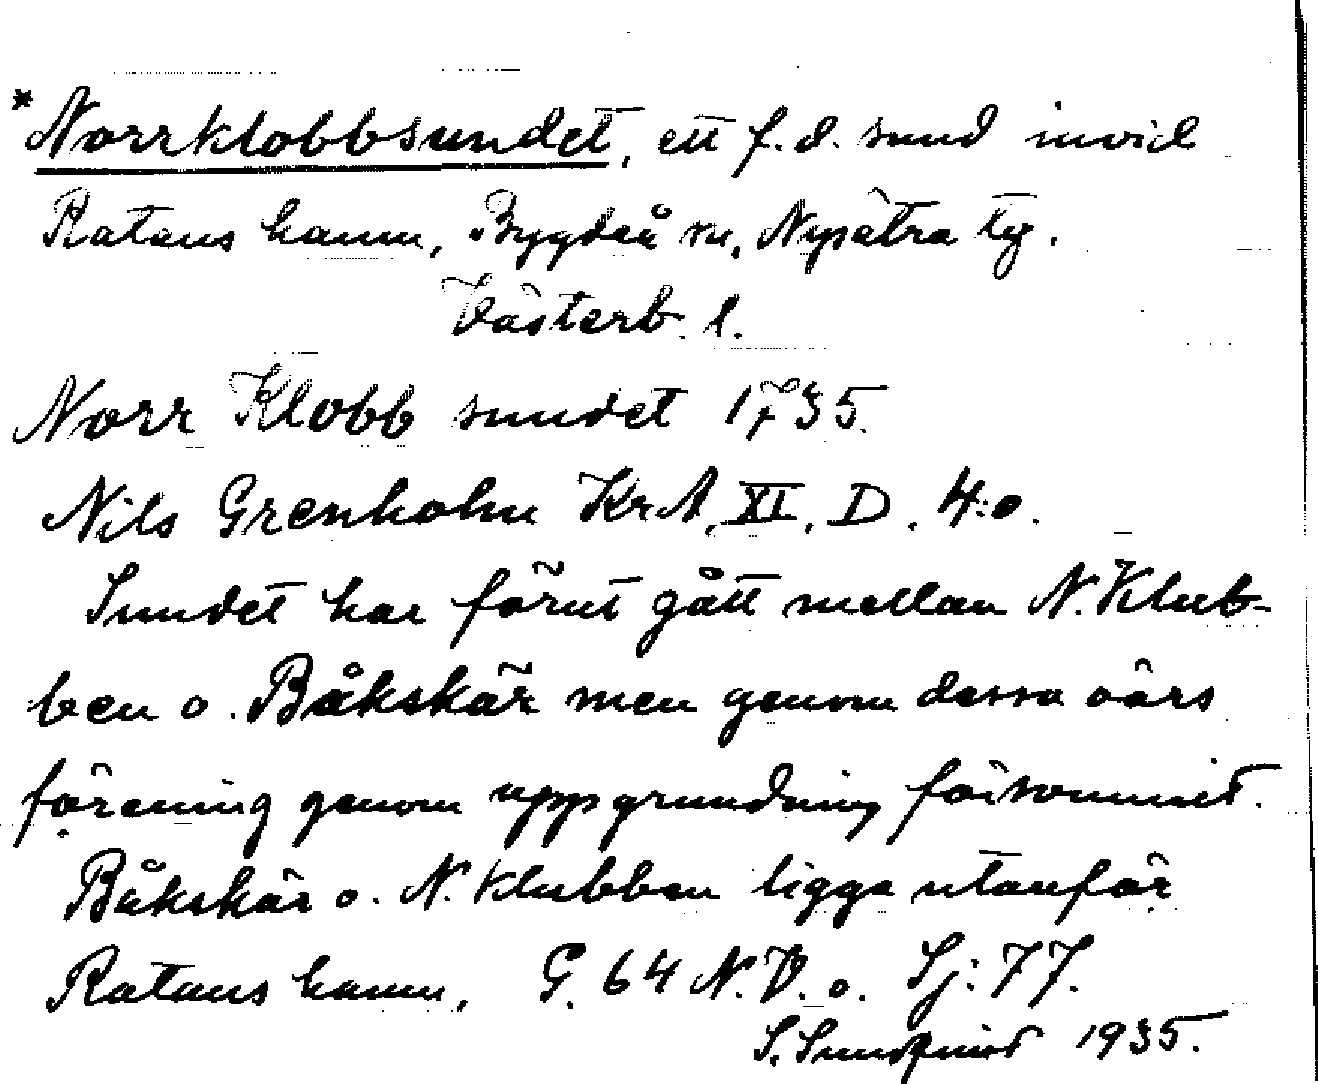 *Norrklobbsundet, ett f.d. sund invid
Ratans hamn, Bygdeå sn, Nysätra tg.
Västerb. l.
Norr Klobb sundet 1735.
Nils Grenholm KrA, XI, D. 4:o.
Sundet har förut gått mellan N. Klub-
ben o. Båkskär men genom dessa öars
förening genom uppgrundning försvunnit.
Båkskär o. N. Klubben ligga utanför
Ratans hamn, G. 64 N.V. o. Sj: 77.
S. Sundqvist 1935.